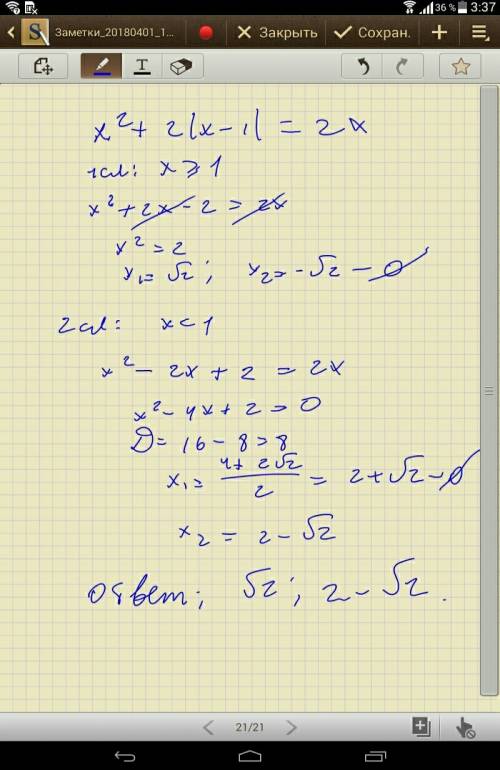 36 % 3:37
Заметки_20180401_1... Закрыть Сохран.
x² + 2|x - 1| = 2x
1сл: x ⩾ 1
x² + 2x - 2 = 2x
x² = 2
x₁ = √2 ; x₂ = -√2 - ∅
2сл: x < 1
x² - 2x + 2 = 2x
x² - 4x + 2 = 0
D = 16 - 8 = 8
x₁ = (4 + 2√2)/2 = 2 + √2 - ∅
x₂ = 2 - √2
ответ; √2 ; 2 - √2.
21/21